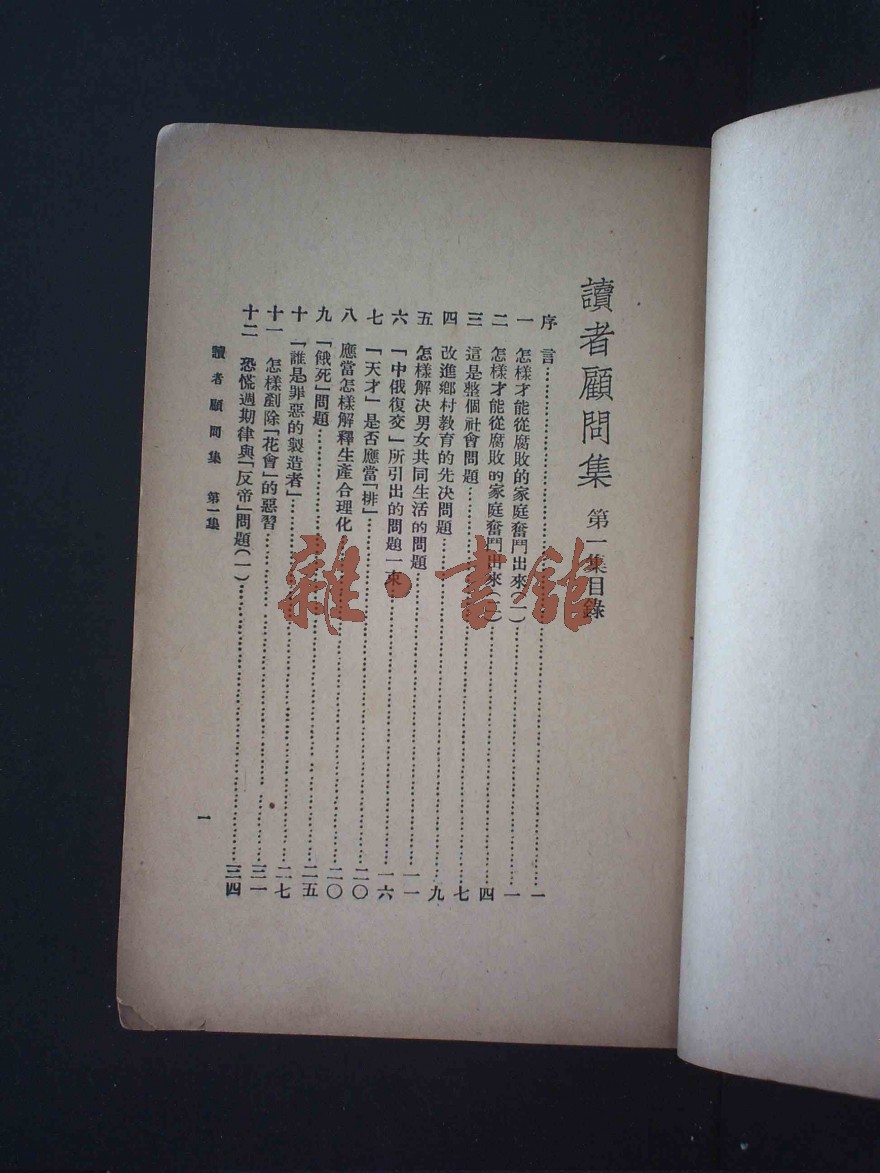 讀者顧問集 第一集目錄
序言……一
一 怎樣才能從腐敗的家庭奮鬥出來(一)……一
二 怎樣才能從腐敗的家庭奮鬥出來(二)……四
三 這是整個社會問題……七
四 改進鄉村教育的先决問題……九
五 怎樣解决男女共同生活的問題……一一
六 「中俄復交」所引出的問題一束……一六
七 「天才」是否應當「捧」……二〇
八 應當怎樣解釋生產合理化……二〇
九 「餓死」問題……二五
十 「誰是罪惡的製造者」……二七
十一 怎樣剷除「花會」的惡習……三一
十二 恐慌週期律與「反帝」問題(一)……三四
讀者顧問集 第一集
一
雜·書館